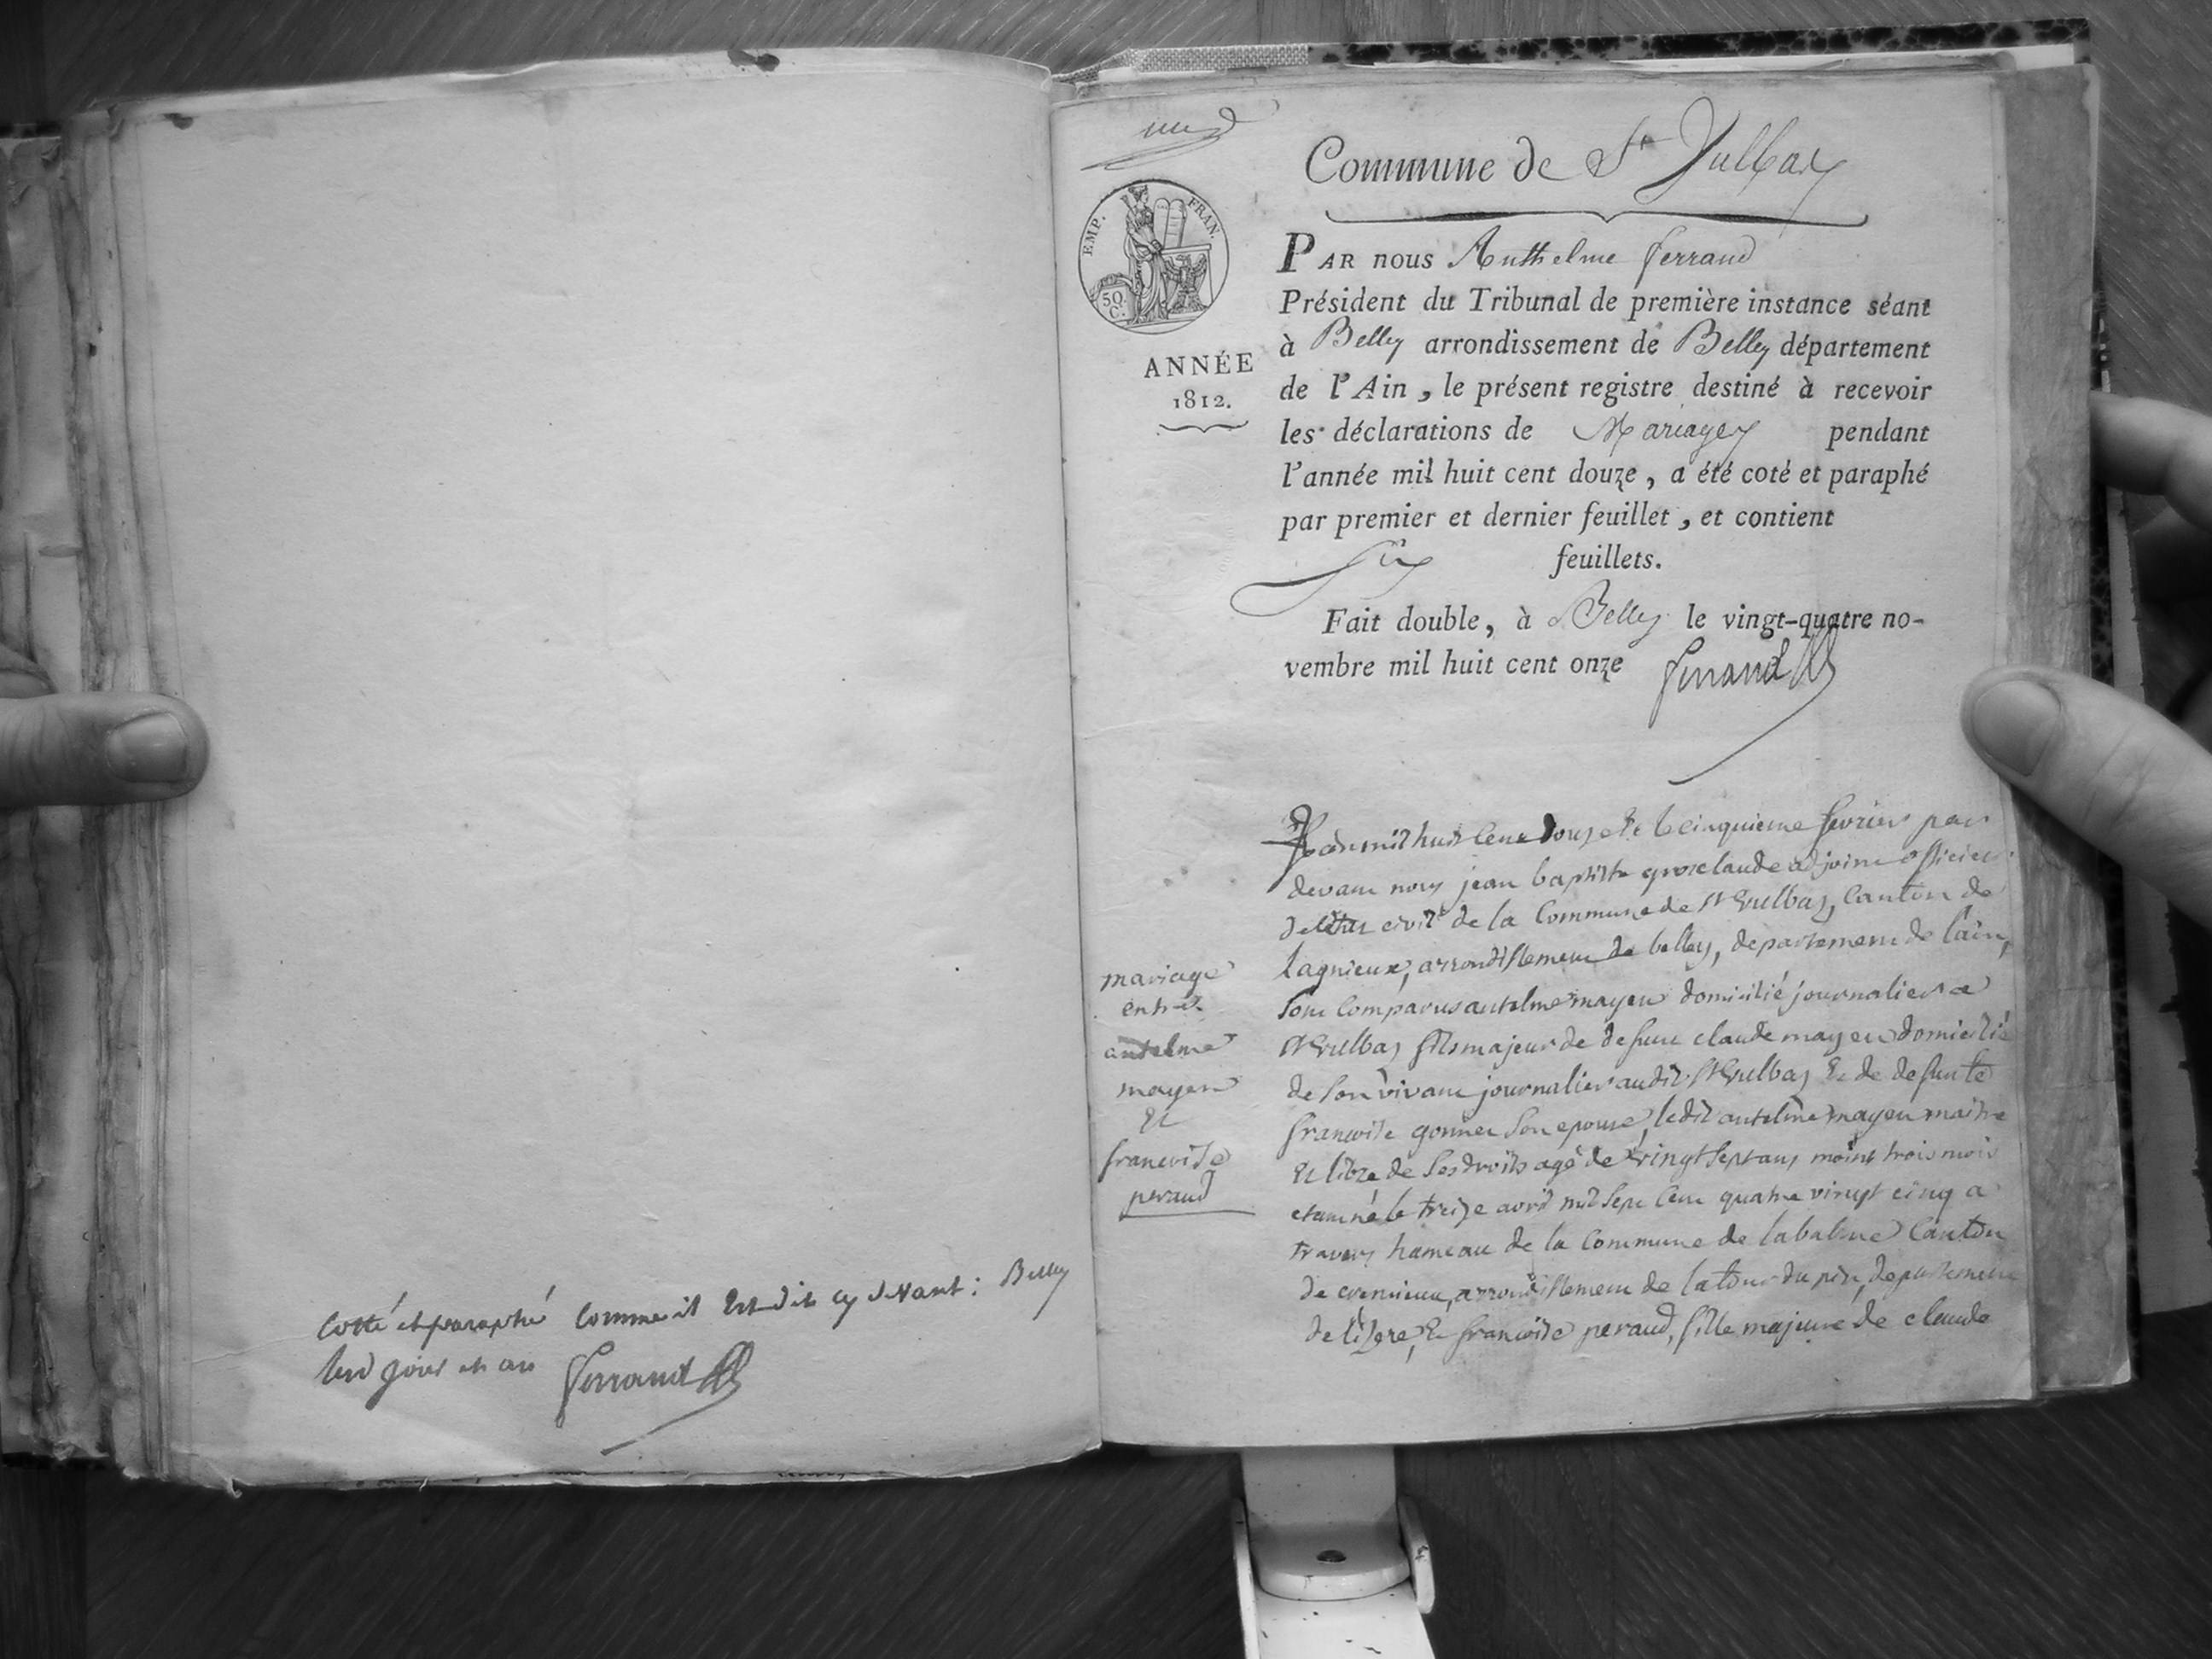 Cotté et paraphé comme il est dit cy devant : Belley
lesd jour et an Ferrand
une
EMP. FRAN.
50. C.
ANNÉE
1812.
Commune de St Vulbas
PAR nous Anthelme ferrand
Président du Tribunal de première instance séant
à Belley arrondissement de Belley département
de l'Ain, le présent registre destiné à recevoir
les déclarations de Mariages pendant
l'année mil huit cent douze, a été coté et paraphé
par premier et dernier feuillet, et contient
six feuillets.
Fait double, à Belley le vingt-quatre no-
vembre mil huit cent onze Ferrand
mariage
entre
antelme
mayen
Et
francoise
peraud
L'an mil huit cent douze et le cinquieme fevrier par
devant nous jean baptiste grosclaude adjoint officier
de l'état civil de la Commune de St Vulbas, Canton de
lagnieux, arrondissement de belley, departement de l'ain,
sont Comparus antelme mayen domicilié journalier a
St Vulbas fils majeur de defunt claude mayen domicilié
de son vivant journalier audit St Vulbas Et de defunte
francoise gonnet son epouse, ledit antelme mayen maitre
Et libre de ses droits agé de vingt sept ans moins trois mois
etant né le treize avril mil sept cent quatre vingt cinq a
travers hameau de la Commune de labalme Canton
de cremieux, arrondissement de latour du pin, departement
de l'isere, Et francoise peraud, fille majeure de claude